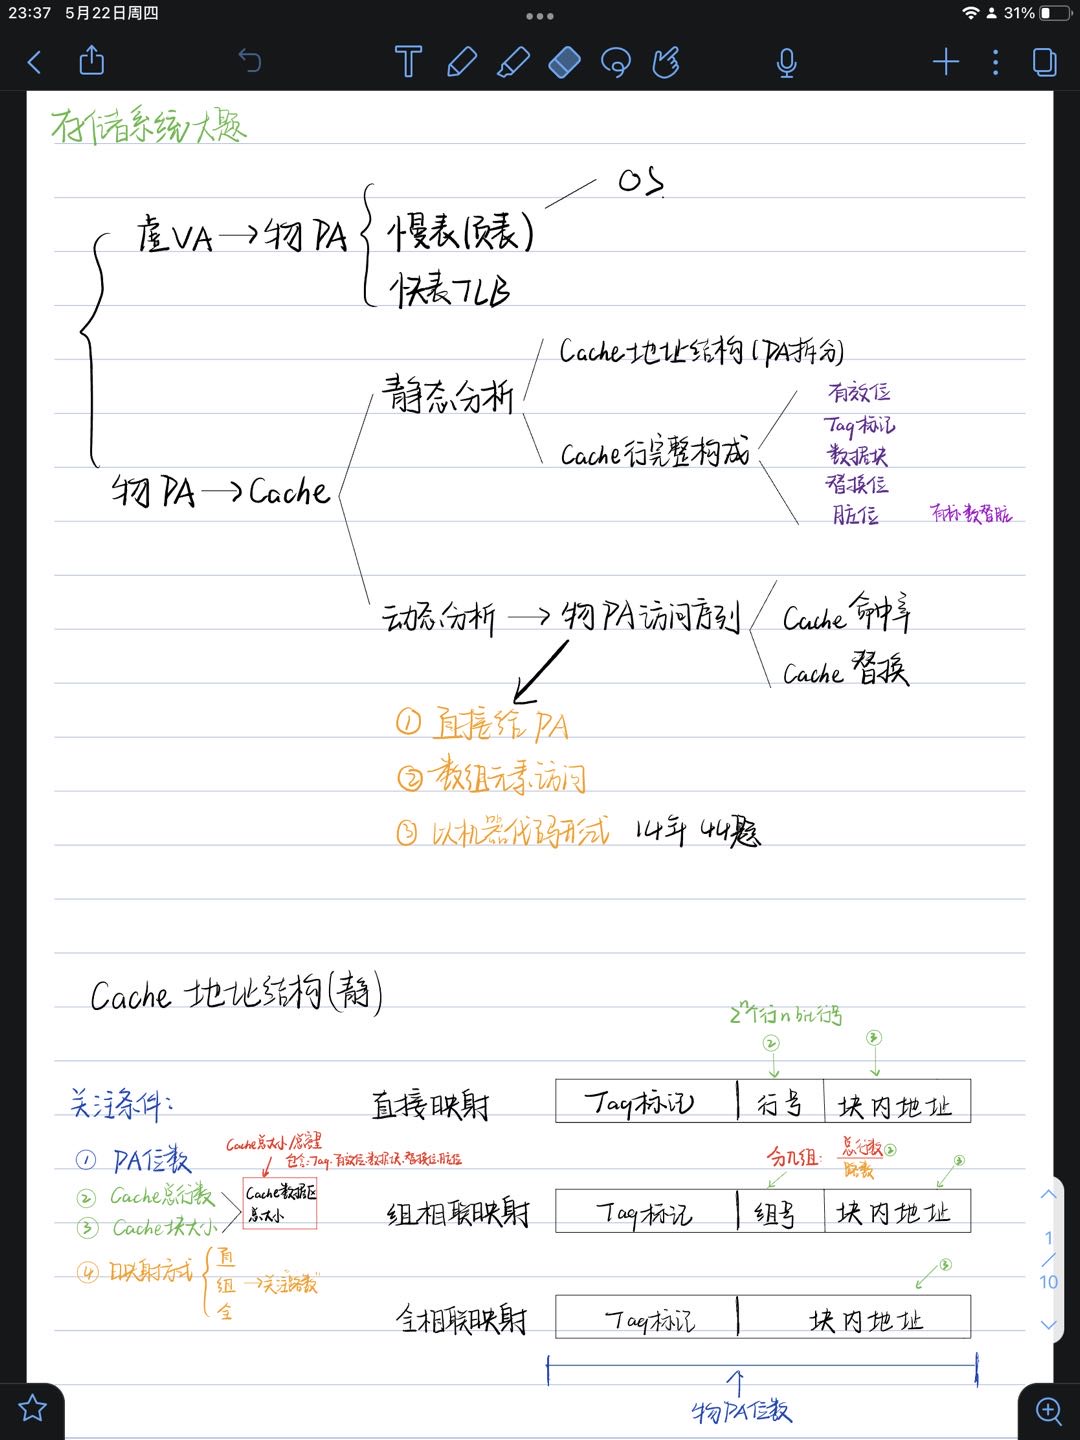 23:37 5月22日周四
31%
存储系统大题
OS
虚VA→物PA
慢表(页表)
快表TLB
Cache地址结构(PA拆分)
静态分析
有效位
Tag标记
Cache行完整构成
数据块
替换位
物PA→Cache
脏位
有标数替脏
动态分析→物PA访问序列
Cache命中率
Cache替换
①直接给PA
②数组元素访问
③以机器代码形式 14年44题
Cache地址结构(静)
2ⁿ个行n bit行号
② ③
关注条件:
直接映射
Tag标记 行号 块内地址
①PA位数
Cache总大小/总容量
包含:Tag.有效位.数据块.替换位.脏位
分几组: 总行数② / 路数
③
②Cache总行数
Cache数据区
总大小
③Cache块大小
组相联映射
Tag标记 组号 块内地址
④映射方式
直
组→关注"路数"
全
③
全相联映射
Tag标记 块内地址
物PA位数
1
/
10